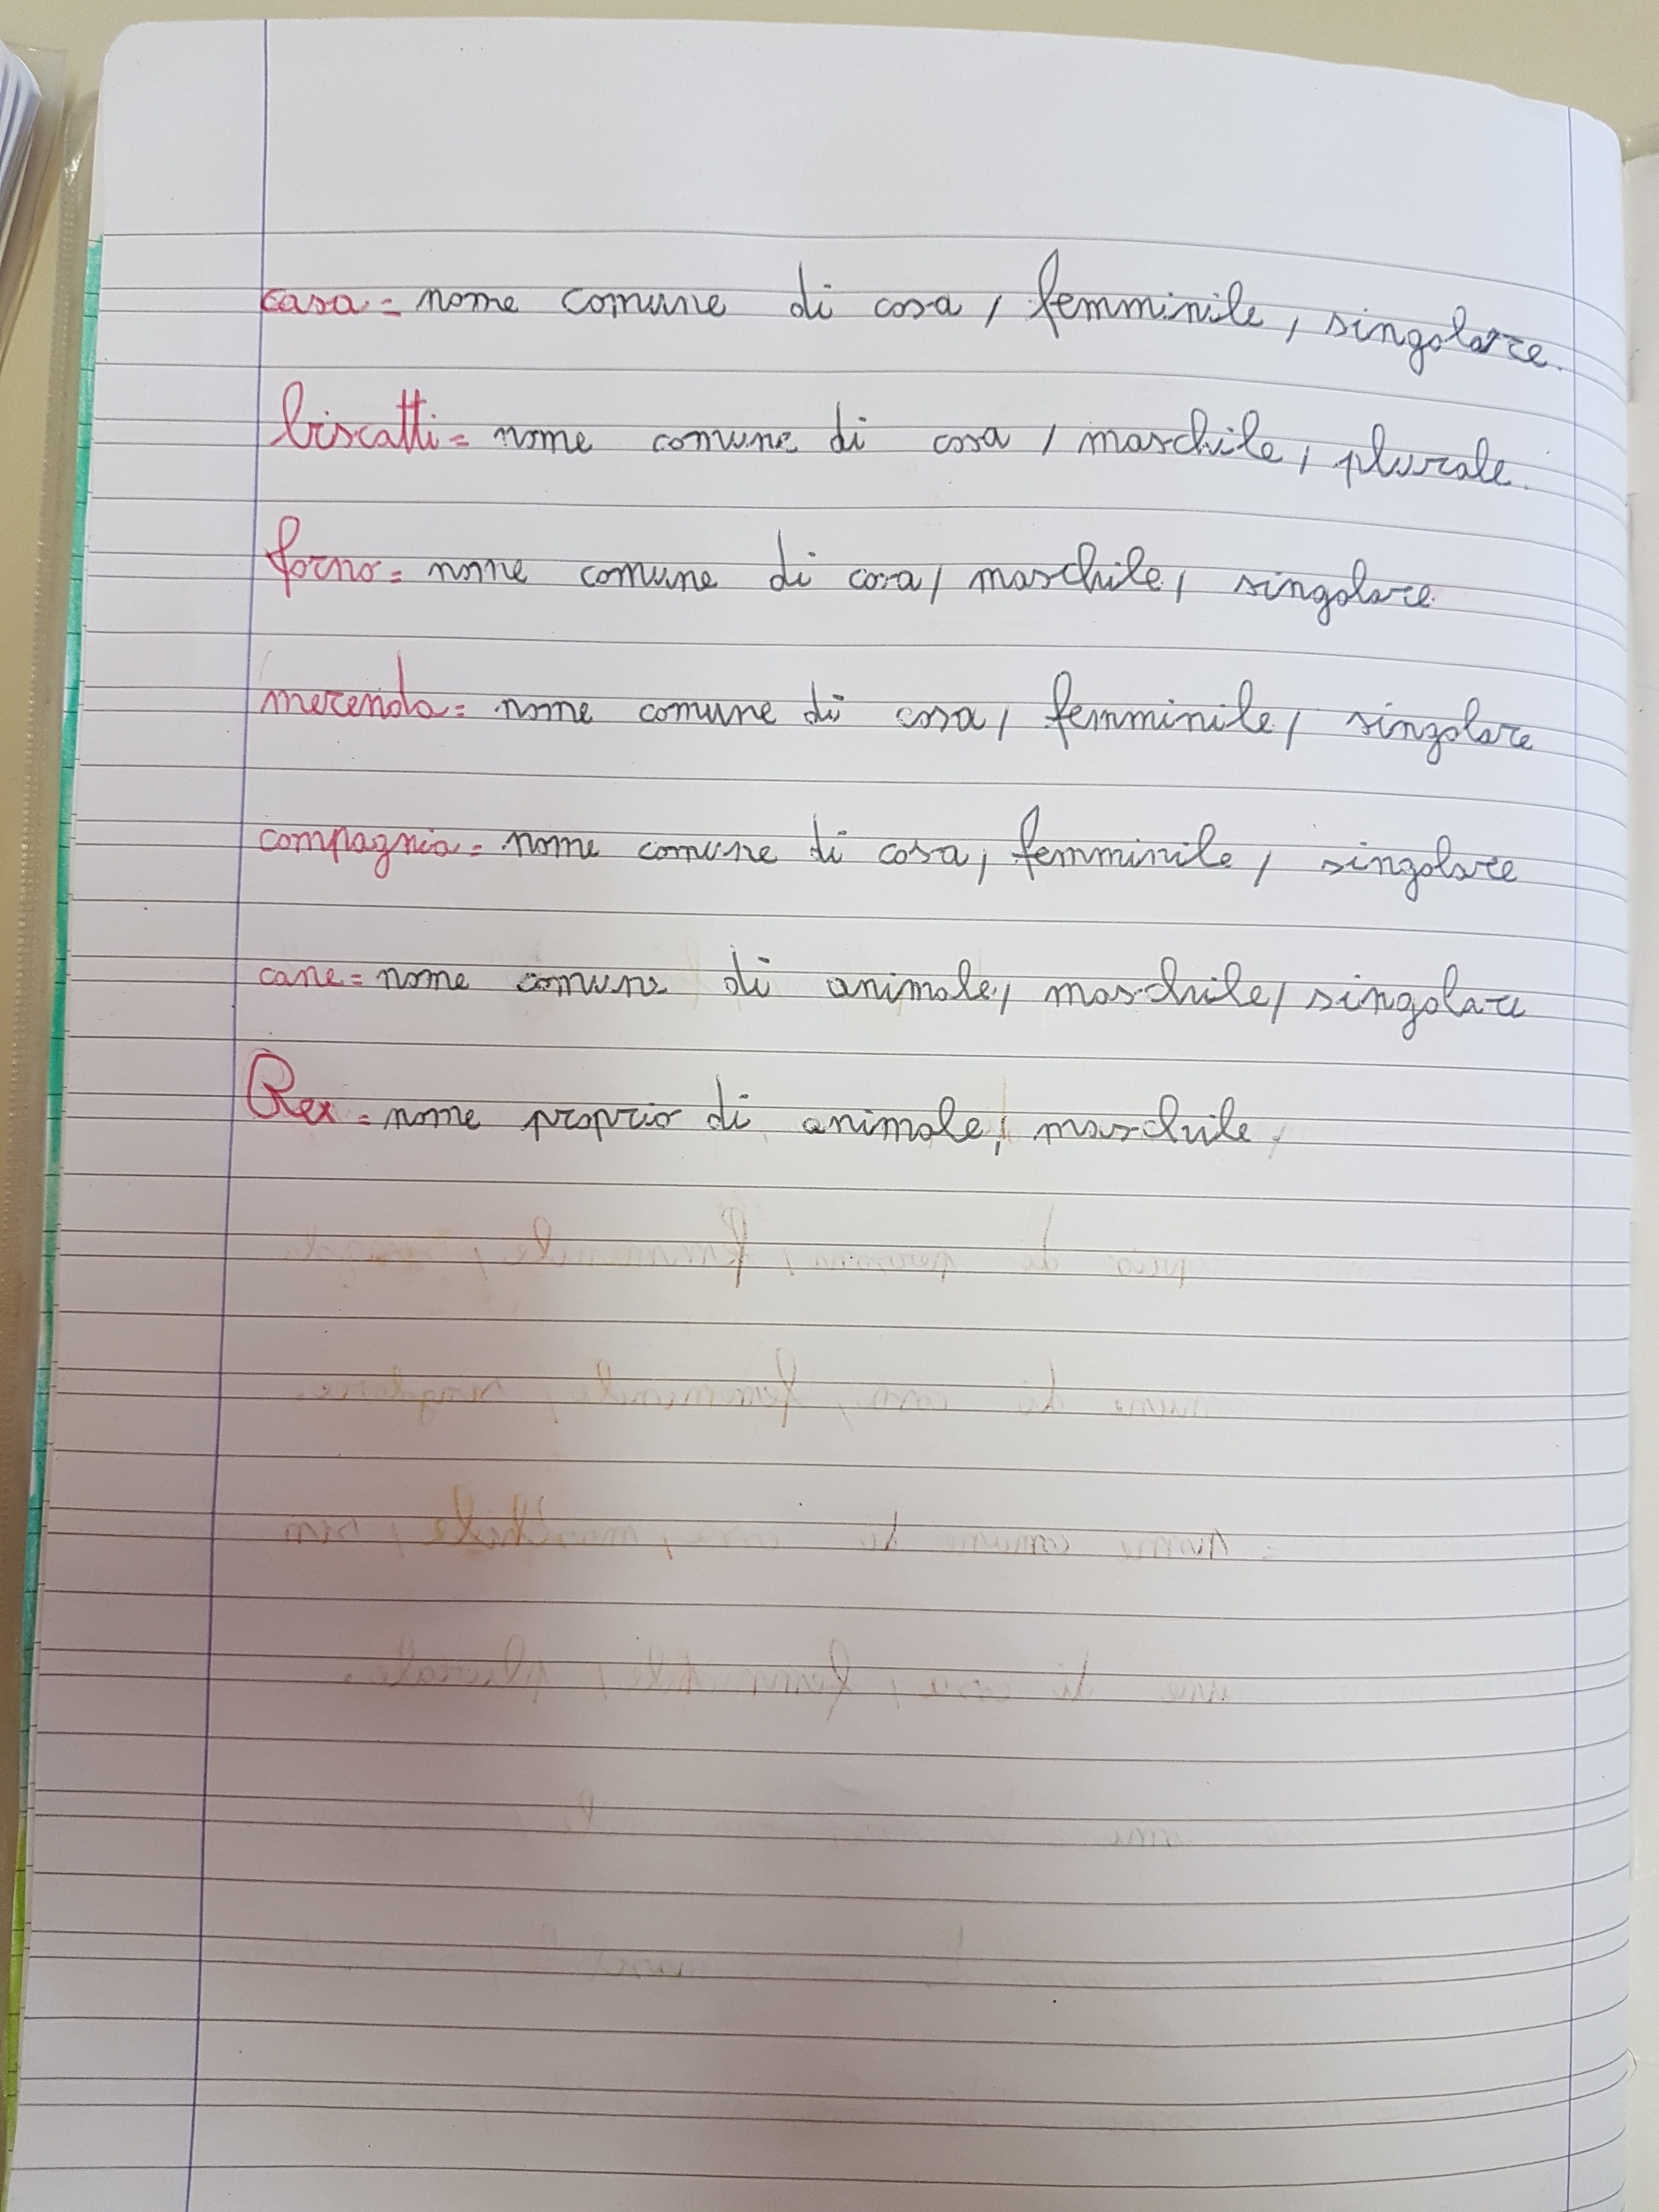 casa = nome comune di cosa, femminile, singolare.
biscatti = nome comune di cosa, maschile, plurale.
forno = nome comune di cosa, maschile, singolare.
merenda = nome comune di cosa, femminile, singolare
compagnia = nome comune di cosa, femminile, singolare
cane = nome comune di animale, maschile, singolare
Rex = nome proprio di animale, maschile,